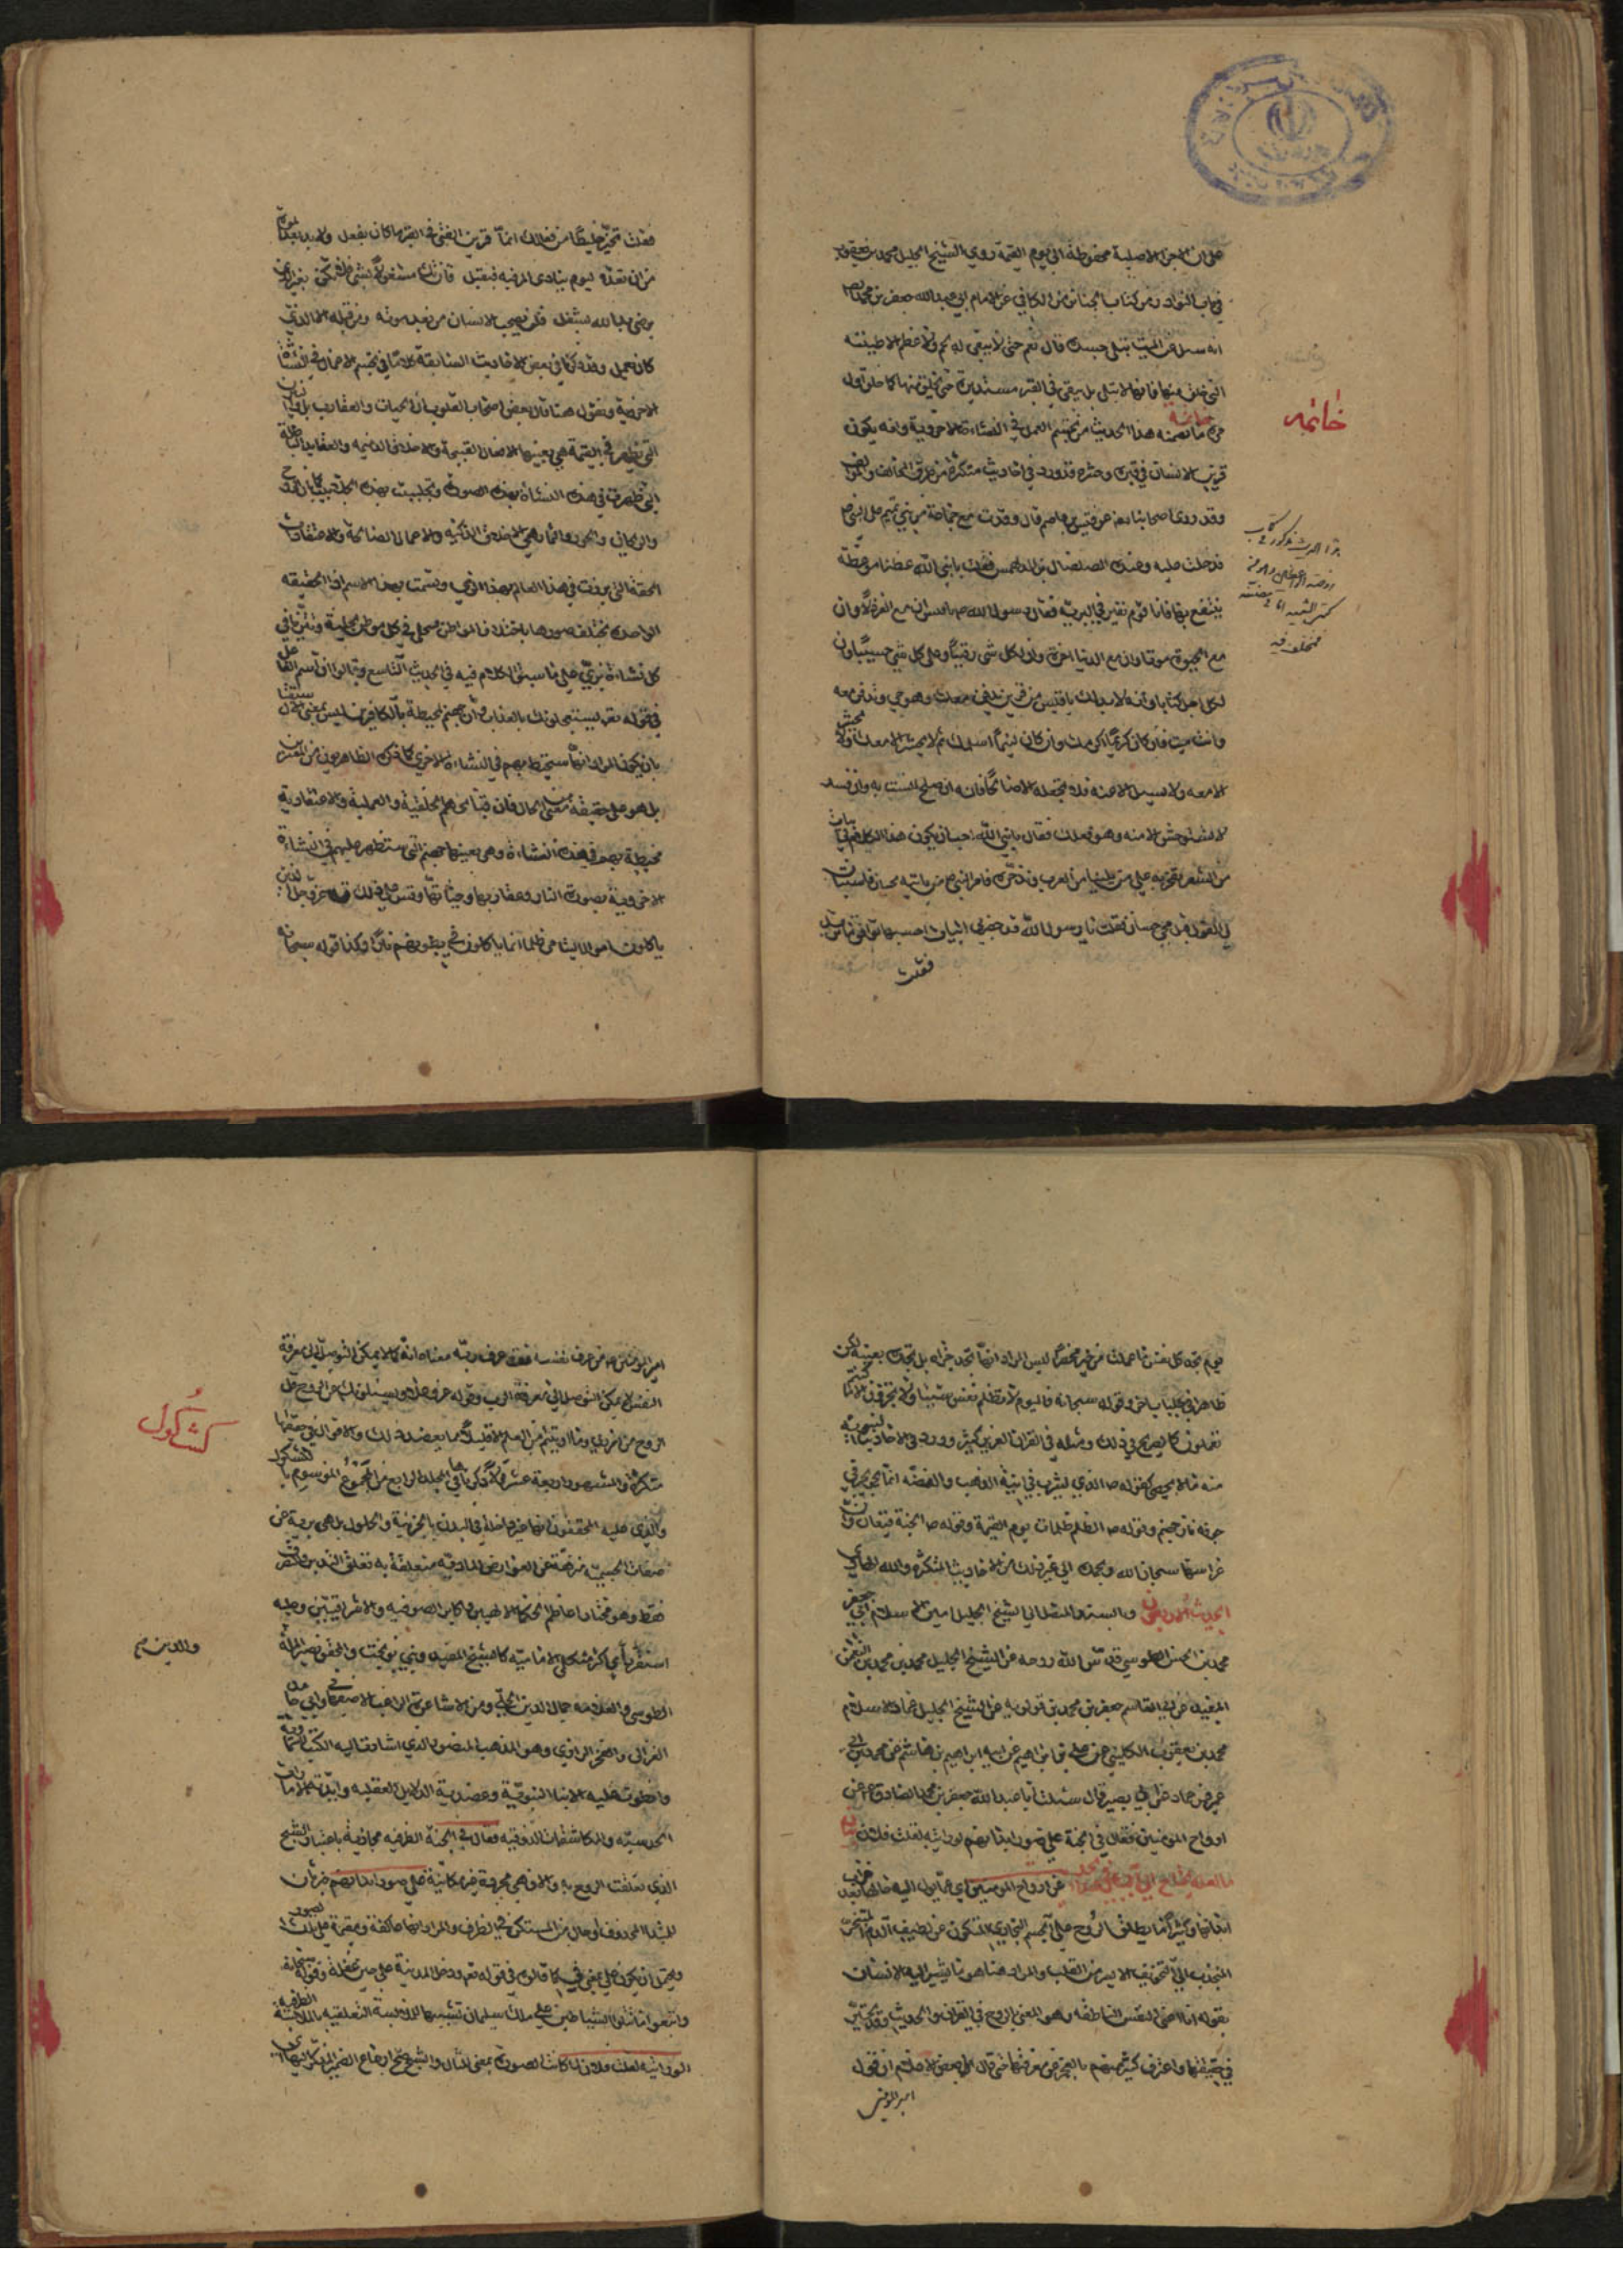 على ان الاجزاء الاصلية محفوظة الى يوم القيمة روى الشيخ الجليل محمد بن يعقوب
في باب النوادر من كتاب الجنائز من الكافي عن الامام ابي عبدالله جعفر بن محمد
انه سئل عن الميت يبلى جسده قال نعم حتى لا يبقى له لحم ولا عظم الا طينته
التي خلق منها فانها لا تبلى بل يبقى في القبر مستديرة حتى يخلق منها كما خلق اول
مرة خاتمة ما تضمنه هذا الحديث من تجسم العمل في النشاءة الاخروية وانه يكون
قرين الانسان في قبره وحشره قد ورد في احاديث متكثرة من طرق المخالف والموالف
وقد روى اصحابنا عن قيس بن عاصم قال وفدت مع جماعة من بني تميم على النبي ص
فدخلت عليه وعنده الصلصال بن الدلهمس فقلت يا نبي الله عظنا موعظة
ننتفع بها فانا قوم نعير في البرية فقال رسول الله ص يا قيس ان مع العز ذلا وان
مع الحيوة موتا وان مع الدنيا اخرة وان لكل شئ رقيبا وعلى كل شئ حسيبا وان
لكل اجل كتابا وانه لا بد لك يا قيس من قرين يدفن معك وهو حي وتدفن معه
وانت ميت فان كان كريما اكرمك وان كان لئيما اسلمك ثم لا يحشر الا معك ولا تحشر
الا معه ولا تسئل الا عنه فلا تجعله الا صالحا فانه ان صلح انست به وان فسد
لا تستوحش الا منه وهو فعلك فقال يا نبي الله احب ان يكون هذا الكلام في ابيات
من الشعر نفخر به على من يلينا من العرب وندخره فامر النبي ص من ياتيه بحسان فاستبان
لي القول قبل مجئ حسان فقلت يا رسول الله قد حضرني ابيات احسبها توافق ما تريد
فقلت
خاتمه
فقلت تخير خليطا من فعالك انما قرين الفتى في القبر ما كان يفعل ولا بد بعد الموت
من ان تعده ليوم ينادى المرء فيه فيقبل فان تك مشغولا بشئ فلا تكن بغير الذي
يرضى به الله تشغل فلن يصحب الانسان من بعد موته ومن قبله الا الذي
كان يعمل وقد ذكرنا في بعض الاحاديث السابقة كلاما في تجسم الاعمال في النشأة
الاخروية ونقول هنا قال بعض اصحاب القلوب ان الحيات والعقارب بل والنيران
التي تظهر في القيمة هي بعينها الافعال القبيحة والاخلاق الذميمه والعقايد الباطلة
التي ظهرت في هذه النشاة بهذه الصورة وتجلببت بهذه الجلابيب كما ان الروح
والريحان والحور والثمار هي الاخلاق الزكية والاعمال الصالحة والاعتقادات
الحقة التي برزت في هذا العالم بهذا الزي وتسمت بهذا الاسم اذ الحقيقه
الواحدة تختلف صورها باختلاف المواطن فتحلى في كل موطن بحلية وتتزيا في
كل نشاءة بزي على ما سبق الكلام فيه في الحديث التاسع وقالوا ان اسم الفاعل
في قوله تعالى يستعجلونك بالعذاب وان جهنم لمحيطة بالكافرين ليس بمعنى الاستقبال
بان يكون المراد انها ستحيط بهم في النشاءة الاخرى كما ذكره الظاهريون من المفسرين
بل هو على حقيقة معنى الحال فان قبائحهم الخلقية والعملية والاعتقادية
محيطة بهم في هذه النشاءة وهي بعينها جهنم التي ستظهر عليهم في النشاءة
الاخروية بصورة النار وعقاربها وحياتها وقس على ذلك قوله عز وجل الذين
ياكلون اموال اليتامى ظلما انما ياكلون في بطونهم نارا وكذا قوله سبحانه
يوم تجد كل نفس ما عملت من خير محضرا ليس المراد انها تجد جزاءه بل تجده بعينه لكن
ظاهرا في جلباب اخر وقوله سبحانه فاليوم لا تظلم نفس شيئا ولا تجزون الا ما كنتم
تعملون كالصريح في ذلك ومثله في القران العزيز كثير وورد في الاحاديث النبوية
منه ما لا يحصى كقوله ص الذي يشرب في انية الذهب والفضه انما يجرجر في
جوفه نار جهنم وقوله ص الظلم ظلمات يوم القيمة وقوله ص الجنة قيعان وان
غراسها سبحان الله وبحمده الى غير ذلك من الاحاديث المتكثرة والله الهادي
الحديث الاربعون وبالسند المتصل الى الشيخ الجليل امين الاسلام ابي جعفر
محمد بن الحسن الطوسي قدس الله روحه عن الشيخ الجليل محمد بن محمد بن النعمان
المفيد عن ابي القاسم جعفر بن محمد بن قولويه عن الشيخ الجليل عماد الاسلام
محمد بن يعقوب الكليني عن علي بن ابراهيم عن ابيه ابراهيم بن هاشم عن محمد بن ابي
عمير عن حماد عن ابي بصير قال سئلت ابا عبدالله جعفر بن محمد الصادق ع عن
ارواح المومنين فقال في الجنة على صور ابدانهم لو رايته لقلت فلان بيان
عن ارواح المومنين اي عما يول اليه حالها بعد خراب
ابدانها وكثيرا ما يطلق الروح على الجسم البخاري المتكون عن لطيف الدم المتبخر
المنجذب الى التجويف الايسر من القلب والمراد هنا هو ما يشير اليه الانسان
بقوله انا اعني النفس الناطقه وهو المعنى بالروح في القران والحديث وقد تحير
في حقيقتها واعترف كثير منهم بالعجز عن معرفتها حتى قال بعض الاعلام ان قول
امير المومنين
امير المومنين من عرف نفسه فقد عرف ربه معناه انه كما لا يمكن التوصل الى معرفة
النفس لا يمكن التوصل الى معرفة الرب وقوله عز وجل ويسئلونك عن الروح قل
الروح من امر ربي وما اوتيتم من العلم الا قليلا مما يعضد ذلك والاقوال في حقيقتها
متكثرة والمشهور اربعة عشر قولا ذكرناها في المجلد الرابع من المجموع الموسوم بالكشكول
والذي عليه المحققون انها غير داخلة في البدن بالجزئية والحلول بل هي برية عن
صفات الجسمية منزهة عن العوارض المادية متعلقة به تعلق التدبير والتصرف
فقط وهو مختار اعاظم الحكماء الالهيين واكابر الصوفيه والاشراقيين وعليه
استقر راي اكثر متكلمي الامامية كالشيخ المفيد وبني نوبخت والمحقق نصير الملة
الطوسي والعلامة جمال الدين الحلي ومن الاشاعرة الراغب الاصفهاني وابي حامد
الغزالي والفخر الرازي وهو المذهب المنصور الذي اشارت اليه الكتب السماوية
وانطوت عليه الانباء النبوية وعضدته الدلايل العقلية وايدته الامارات
الحدسية والمكاشفات الذوقيه فقال في الجنة الظرفيه مجازية باعتبار الشبح
الذي تعلقت الروح به والا فهي مجردة غير مكانية على صور ابدانهم خبر ثان
للمبتدا المحذوف او حال من المستكن في الظرف والمراد انها عاكفة ومقيمة على تلك الصور
ويحتمل ان يكون على بمعنى في كما قالوه في قوله تعالى ودخل المدينة على حين غفلة وقوله تعالى
واتبعوا ما تتلوا الشياطين على ملك سليمان تشبيها للملابسة التعلقيه بالملابسة الظرفيه
لو رايته لقلت فلان لما كانت الصورة بمعنى المثال والشبح صح ارجاع الضمير المذكر اليها اي
كشكول
والدين